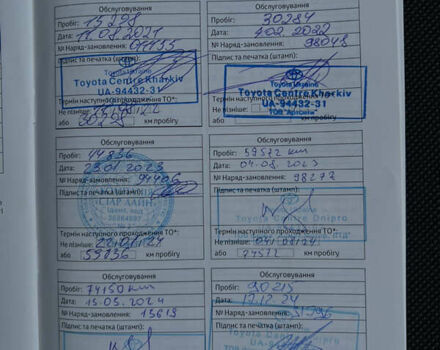 Обслуговування
Пробіг: 15298
Дата: 11.08.2021
№ Наряд-замовлення:
Підпис та печатка (штамп):
Toyota Centre Kharkiv
UA-94432-31
Термін наступного проходження ТО*:
Не пізніше:
або 30298 км пробігу
Обслуговування
Пробіг: 30284
Дата: 4.02.2022
№ Наряд-замовлення: 98048
Підпис та печатка (штамп):
Toyota Ukraine
Toyota Centre Kharkiv
UA-94432-31
ТОВ "Артсіті"
Не пізніше:
або км пробігу
Обслуговування
Пробіг: 44836
Дата: 23.01.2023
№ Наряд-замовлення: 94406
Підпис та печатка (штамп):
СТАР ЛАЙН
Термін наступного проходження ТО*:
Не пізніше: 22/01/24
або 59836 км пробігу
Обслуговування
Пробіг: 59572 km
Дата: 04.08.2023
№ Наряд-замовлення: 98272
Підпис та печатка (штамп):
Toyota Centre Dnipro
Термін наступного проходження ТО*:
Не пізніше: 04/08/24
або 74572 км пробігу
Обслуговування
Пробіг: 74150 km
Дата: 15.05.2024
№ Наряд-замовлення: 15613
Підпис та печатка (штамп):
Обслуговування
Пробіг: 90215
Дата: 17.12.24
№ Наряд-замовлення: 31996
Підпис та печатка (штамп):